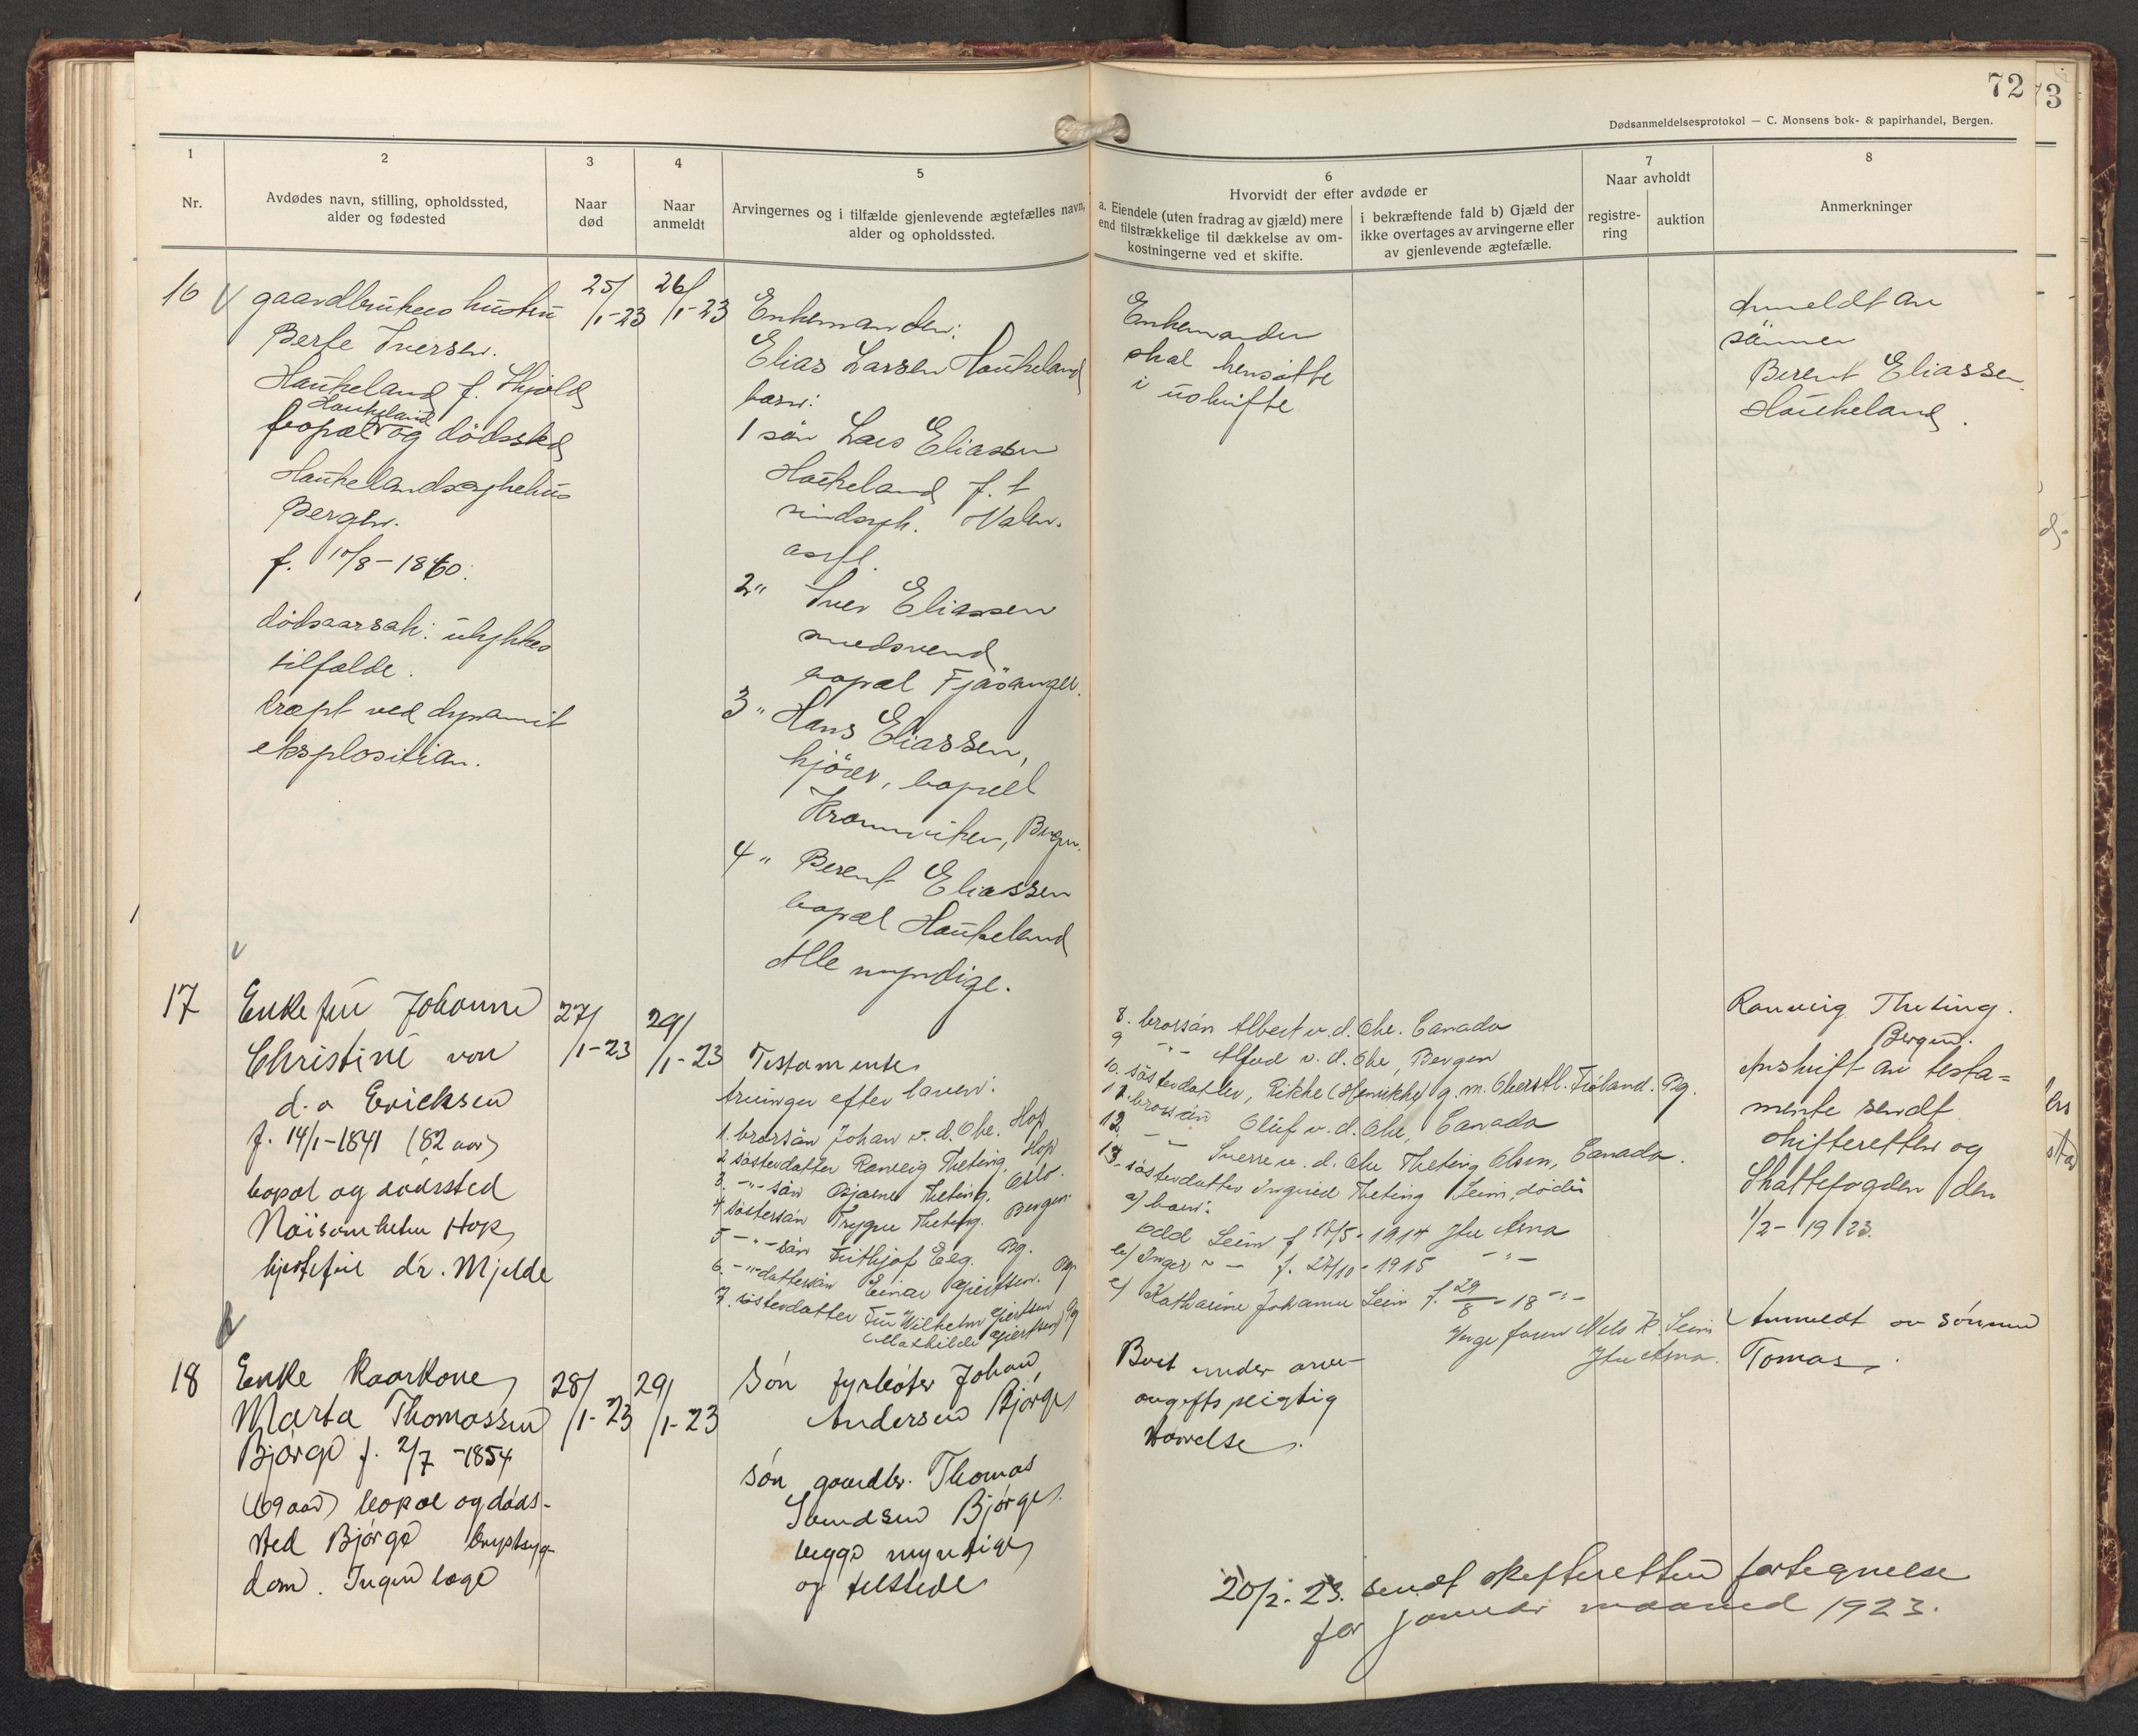 72
73
Dødsanmeldelsesprotokol — C. Monsens bok- & papirhandel, Bergen.
1
Nr.
2
Avdødes navn, stilling, opholdssted,
alder og fødested
3
Naar
død
4
Naar
anmeldt
5
Arvingernes og i tilfælde gjenlevende ægtefælles navn,
alder og opholdssted.
6
Hvorvidt der efter avdøde er
a. Eiendele (uten fradrag av gjæld) mere
end tilstrækkelige til dækkelse av om-
kostningerne ved et skifte.
i bekræftende fald b) Gjæld der
ikke overtages av arvingerne eller
av gjenlevende ægtefælle.
7
Naar avholdt
registre-
ring
auktion
8
Anmerkninger
16
gaardbrukers hustru
Berte Iversen
Haukeland f. Skjold
Haukeland
bopæl og dödssted
Haukelandssykehus
Bergen.
f. 10/8-1860.
dödsaarsak: ulykkes
tilfælde.
dræpt ved dynamit
eksplosition.
25/1-23
26/1-23
Enkemanden:
Elias Larsen Haukeland
barn:
1 sön Lars Eliassen
Haukeland f. t
sindssyk. Valen
asyl.
2" Iver Eliassen
smedsvend
bopæl Fjösanger.
3" Hans Eliassen,
kjörer, bopæl
Kronviken, Bergen.
4" Berent Eliassen
bopæl Haukeland
Alle myndige.
Enkemanden
skal hensitte
i uskifte
Anmeldt av
sönnen
Berent Eliassen
Haukeland.
17
Enkefru Johanne
Christine von
d. a Ericksen
f. 14/1-1841 (82 aar)
bopæl og dödssted
Nöisomheten Hop,
hjertefeil dr. Mjelde
27/1-23
29/1-23
Testamente
Arvinger efter loven:
1. brorsön Johan v. d. Ohe. Hop
2 sösterdatter Ranveig Theting. Hop
3. -"- sön Bjarne Theting. Oslo.
4 söstersön Trygve Theting. Bergen.
5 -"- sön Frithjof Eeg. Bg.
6. -"- dattersön Einar Gjertsen. Bg
7. sösterdatter Fru Wilhelm Gjertsen Bg
(Mathilde Gjertsen)
8. brorsön Albert v. d. Ohe. Canada
9 -"- Alfred v. d. Ohe, Bergen
10. sösterdatter, Rikke (Henrikke) g. m. Oberstl. Fröland. Bg.
11. brorsön Oluf v. d. Ohe, Canada
12. -"- Sverre v. d. Ohe Theting Olsen, Canada.
13. sösterdatter Ingrid Theting Seim, död
a) barn:
Odd Seim f 18/5-1914 Ytre Arna
b) Inger -"- f. 27/10-1915 -"-
c) Katharine Johanne Seim f. 29/8-18 -"-
Verge faren Nils R. Seim
Ytre Arna.
Ranveig Theting.
Bergen.
Avskrift av testa=
mente sendt
skifteretten og
Skattefogden den
1/2-1923.
18
Enke kaarkone
Marta Thomassen
Bjørge f. 2/7-1854
(69 aar) bopæl og døds-
sted Bjørge brystsyg-
dom. Ingen læge
28/1-23
29/1-23
Søn fyrbøter Johan
Andersen Bjørge
Søn gaardbr. Thomas
Svendsen Bjørge.
begge myndige
og tilstede
Boet under arve-
avgiftspligtig
størrelse.
Anmeldt av sønnen
Tomas.
20/2-23. sendt skifteretten fortegnelse
for januar maaned 1923.